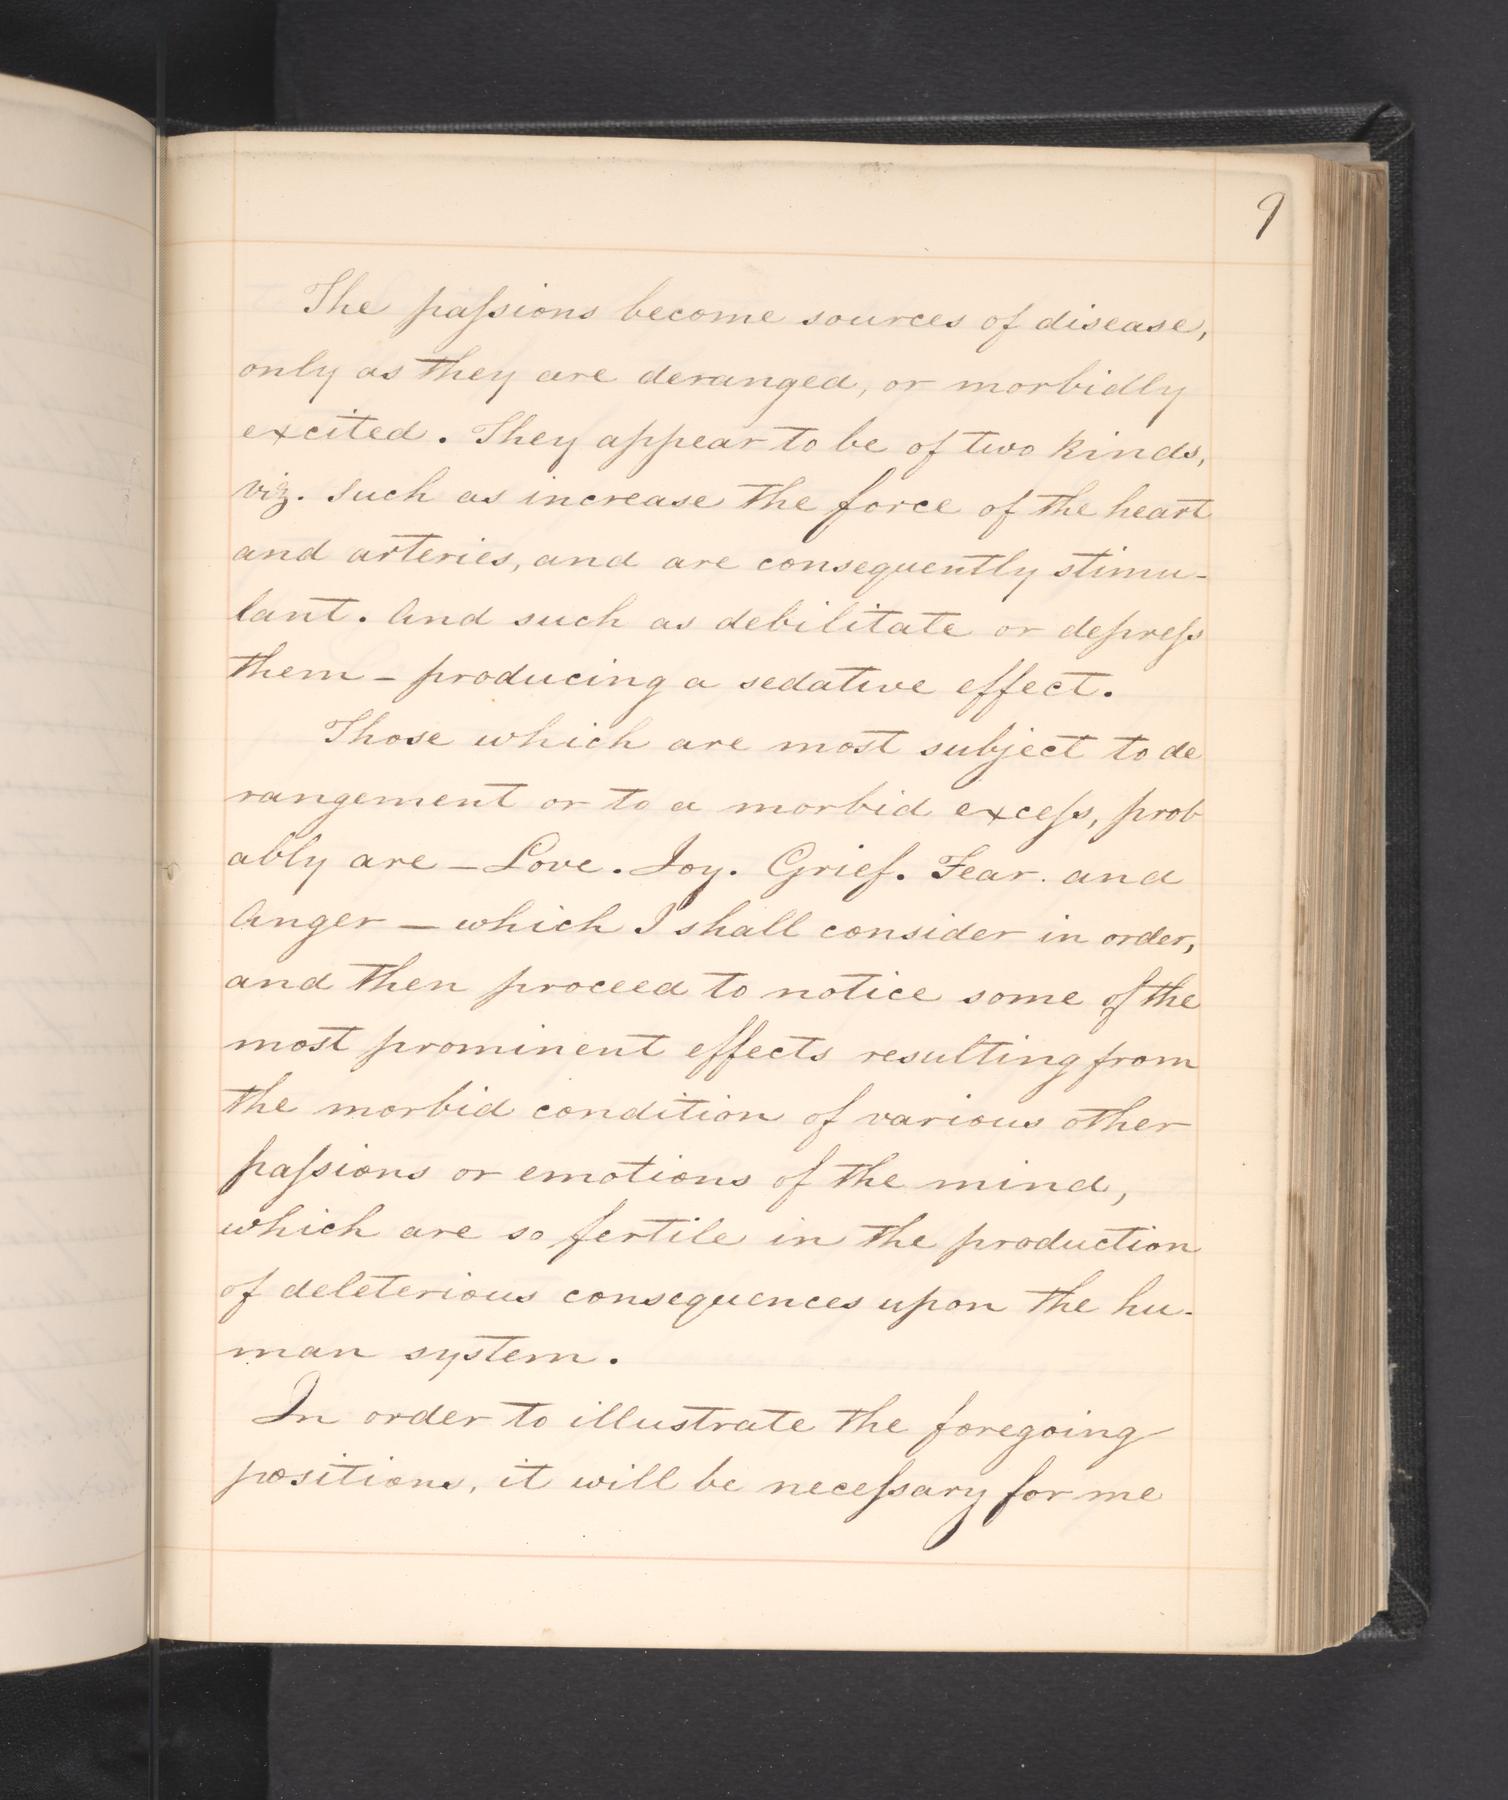 9
The paſsions become sources of disease,
only as they are deranged, or morbidly
excited. They appear to be of two kinds,
viz. such as increase the force of the heart
and arteries, and are consequently stimu-
lant. And such as debilitate or depreſs
them – producing a sedative effect.
Those which are most subject to de
rangement or to a morbid exceſs, prob
ably are – Love. Joy. Grief. Fear. and
Anger – which I shall consider in order,
and then proceed to notice some of the
most prominent effects resulting from
the morbid condition of various other
paſsions or emotions of the mind,
which are so fertile in the production
of deleterious consequences upon the hu-
man system.
In order to illustrate the foregoing
positions, it will be neceſsary for me